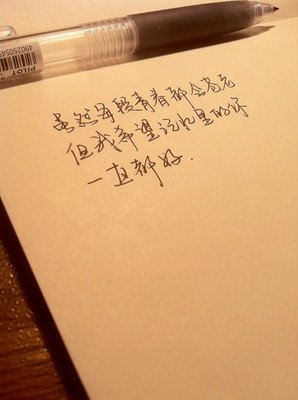 PILOT
虽然每段青春都会苍老
但我希望记忆里的你
一直都好.